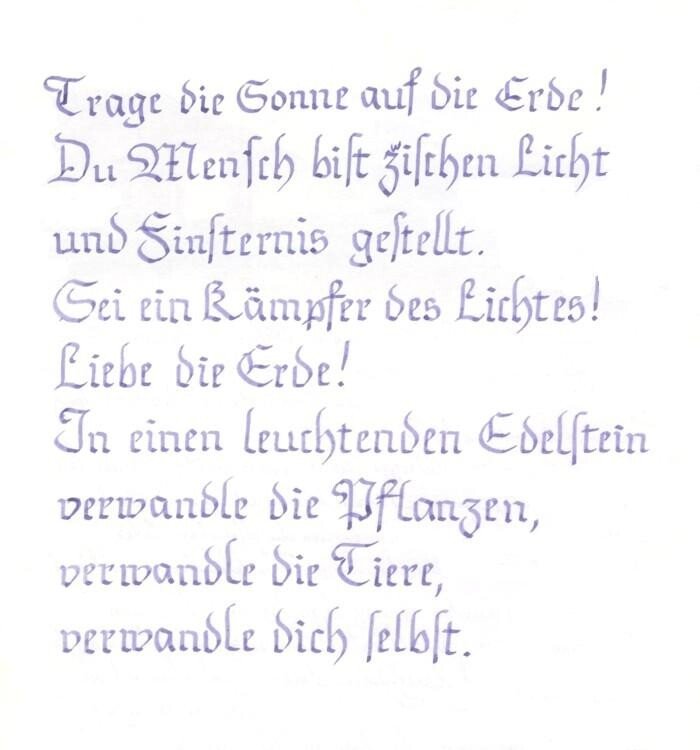 Trage die Sonne auf die Erde!
Du Menſch biſt ziſchen Licht
und Finſternis geſtellt.
Sei ein Kämpfer des Lichtes!
Liebe die Erde!
In einen leuchtenden Edelſtein
verwandle die Pflanzen,
verwandle die Tiere,
verwandle dich ſelbſt.